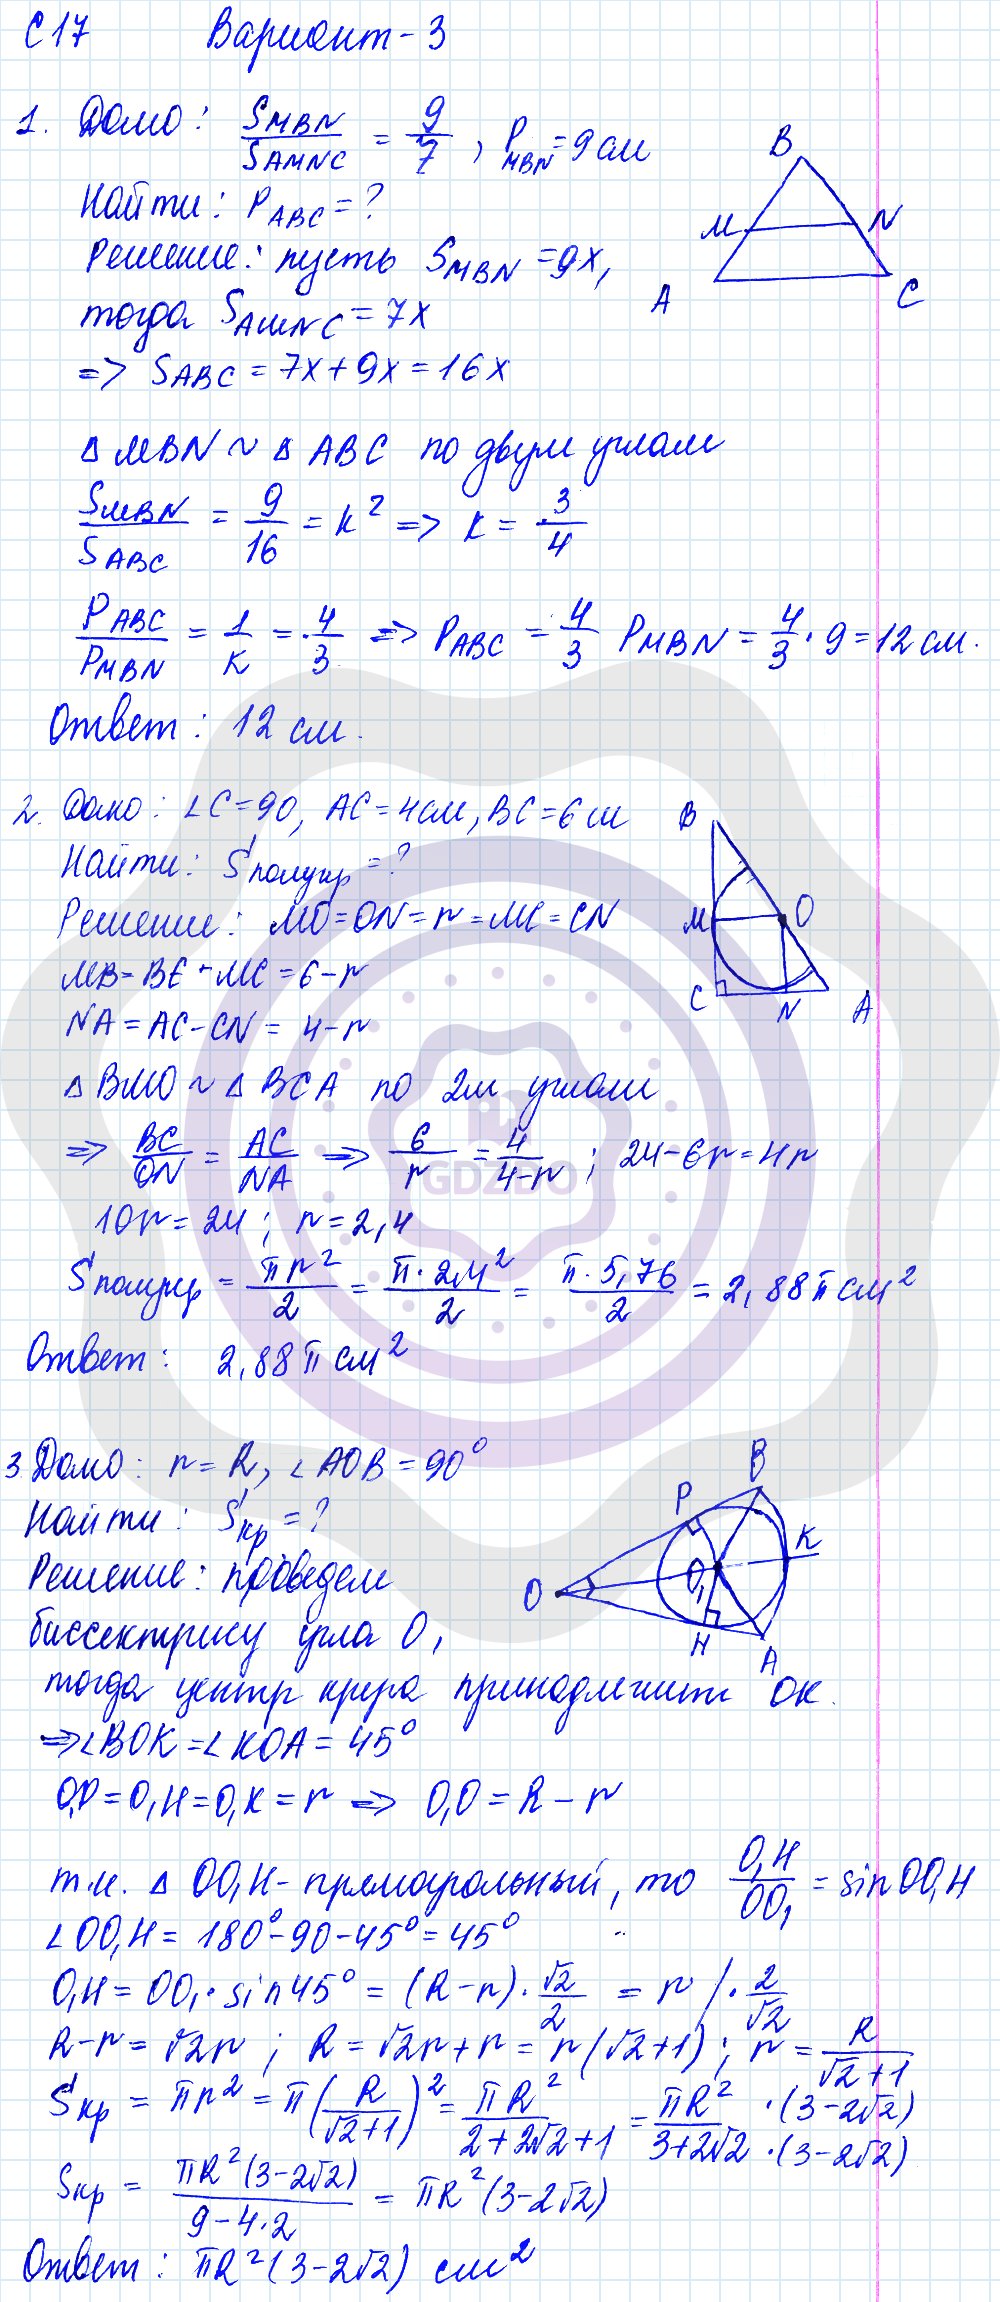 С17 Вариант-3
1. Дано: S_MBN / S_AMNC = 9/7, P_MBN = 9 см
Найти: P_ABC = ?
Решение: пусть S_MBN = 9x,
тогда S_AMNC = 7x
=> S_ABC = 7x + 9x = 16x
B
M N
A C
Δ MBN ~ Δ ABC по двум углам
S_MBN / S_ABC = 9/16 = k² => k = 3/4
P_ABC / P_MBN = 1/k = 4/3 => P_ABC = 4/3 P_MBN = 4/3 · 9 = 12 см.
Ответ: 12 см.
2. Дано: ∠C = 90, AC = 4 см, BC = 6 см
Найти: S полукр = ?
Решение: MO = ON = r = MC = CN
MB = BC - MC = 6 - r
NA = AC - CN = 4 - r
B
M O
C N A
Δ BMO ~ Δ BCA по 2м углам
=> BC/ON = AC/NA => 6/r = 4/(4-r); 24 - 6r = 4r
10r = 24; r = 2,4
S полукр = πr²/2 = π·2,4²/2 = π·5,76/2 = 2,88π см²
Ответ: 2,88π см²
GDZBO
3. Дано: r = R, ∠AOB = 90°
Найти: S кр = ?
Решение: проведем
биссектрису угла O,
B
P
K
O O₁
H
A
тогда центр круга принадлежит OK.
=> ∠BOK = ∠KOA = 45°
O₁P = O₁H = O₁K = r => O₁O = R - r
т.к. Δ OO₁H - прямоугольный, то O₁H / OO₁ = sin OO₁H
∠OO₁H = 180° - 90 - 45° = 45°
O₁H = OO₁ · sin 45° = (R - r) · √2/2 = r / · 2/√2
R - r = √2r; R = √2r + r = r(√2+1); r = R/(√2+1)
S кр = πr² = π(R/(√2+1))² = πR²/(2+2√2+1) = πR²/(3+2√2) ·(3-2√2)/·(3-2√2)
S кр = πR²(3-2√2)/(9-4·2) = πR²(3-2√2)
Ответ: πR²(3-2√2) см²